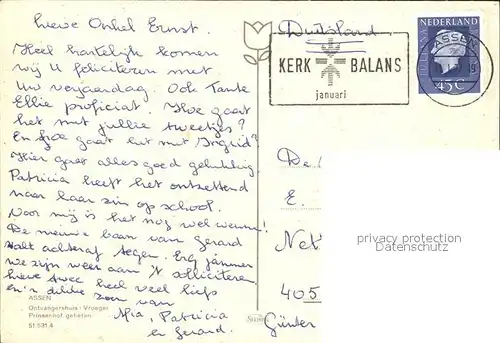 Lieve Onkel Ernst.
Heel hartelijk komen
wij U feliciteren met
Uw verjaardag. Ook Tante
Ellie proficiat. Hoe gaat
het met jullie tweetjes?
En hoe gaat het met Ingrid?
Hier gaat alles goed gelukkig.
Patricia heeft het ontzettend
naar haar zin op school.
Voor mij is het nog wel wennen!
De nieuwe baan van Gerard
valt achteraf tegen. Erg jammer
we zijn weer aan 't solliciteren
hieve twee heel veel liefs
en 'n dikke zoen van
Mia, Patricia
en Gerard.
ASSEN
Ontvangershuis - Vroeger
Prinsenhof geheten
51.531.4
Duitsland
KERK BALANS
januari
ASSEN
NEDERLAND
45 C
De
E.
Net
405
Günter
privacy protection
Datenschutz